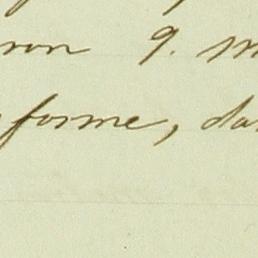 ron 9. m
forme, da